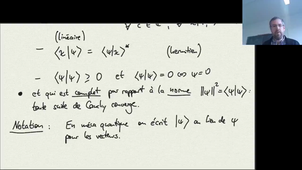 (linéaire)
- ⟨χ|ψ⟩ = ⟨ψ|χ⟩* (hermitien)
- ⟨ψ|ψ⟩ ≥ 0 et ⟨ψ|ψ⟩ = 0 ⇔ ψ = 0
• et qui est complet par rapport à la norme ‖ψ‖² = ⟨ψ|ψ⟩ :
toute suite de Cauchy converge.
Notation : En méca quantique on écrit |ψ⟩ au lieu de ψ
pour les vecteurs.